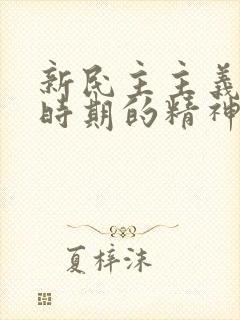 新民主主義
時期的精神
夏梓沫